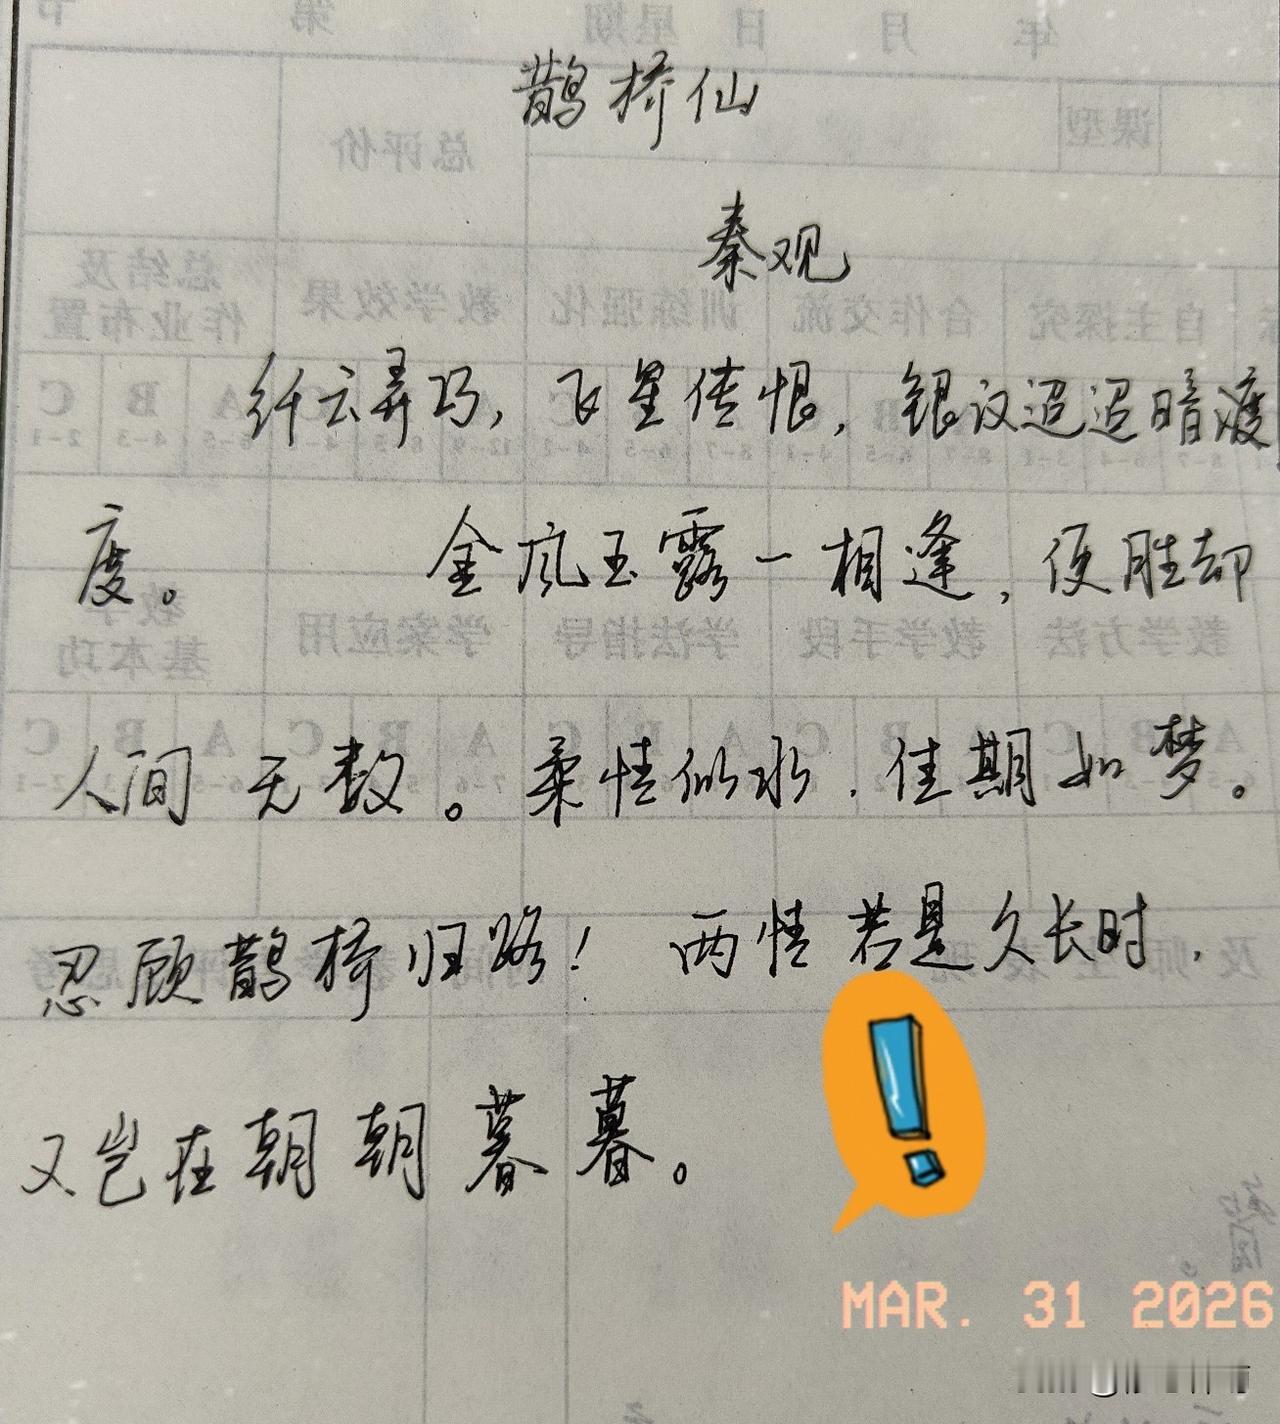 鹊桥仙
秦观
纤云弄巧，飞星传恨，银汉迢迢暗渡
度。 金风玉露一相逢，便胜却
人间无数。柔情似水，佳期如梦。
忍顾鹊桥归路！两情若是久长时，
又岂在朝朝暮暮。
MAR. 31 2026
年 月 日 星期 第 节
课型
总评价
总结及
作业布置
教学效果
训练强化
合作交流
自主探究
教学
基本功
学案应用
学法指导
教学手段
教学方法